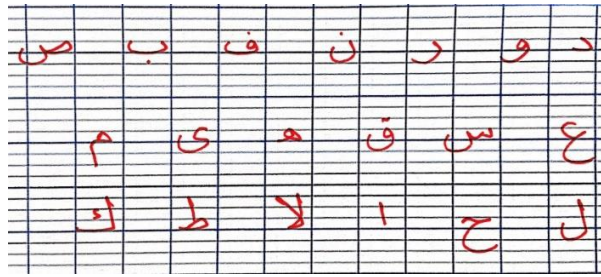 د و ر ن ف ب ص
ع س ق ه ى م
ل ح ا لا ط ك